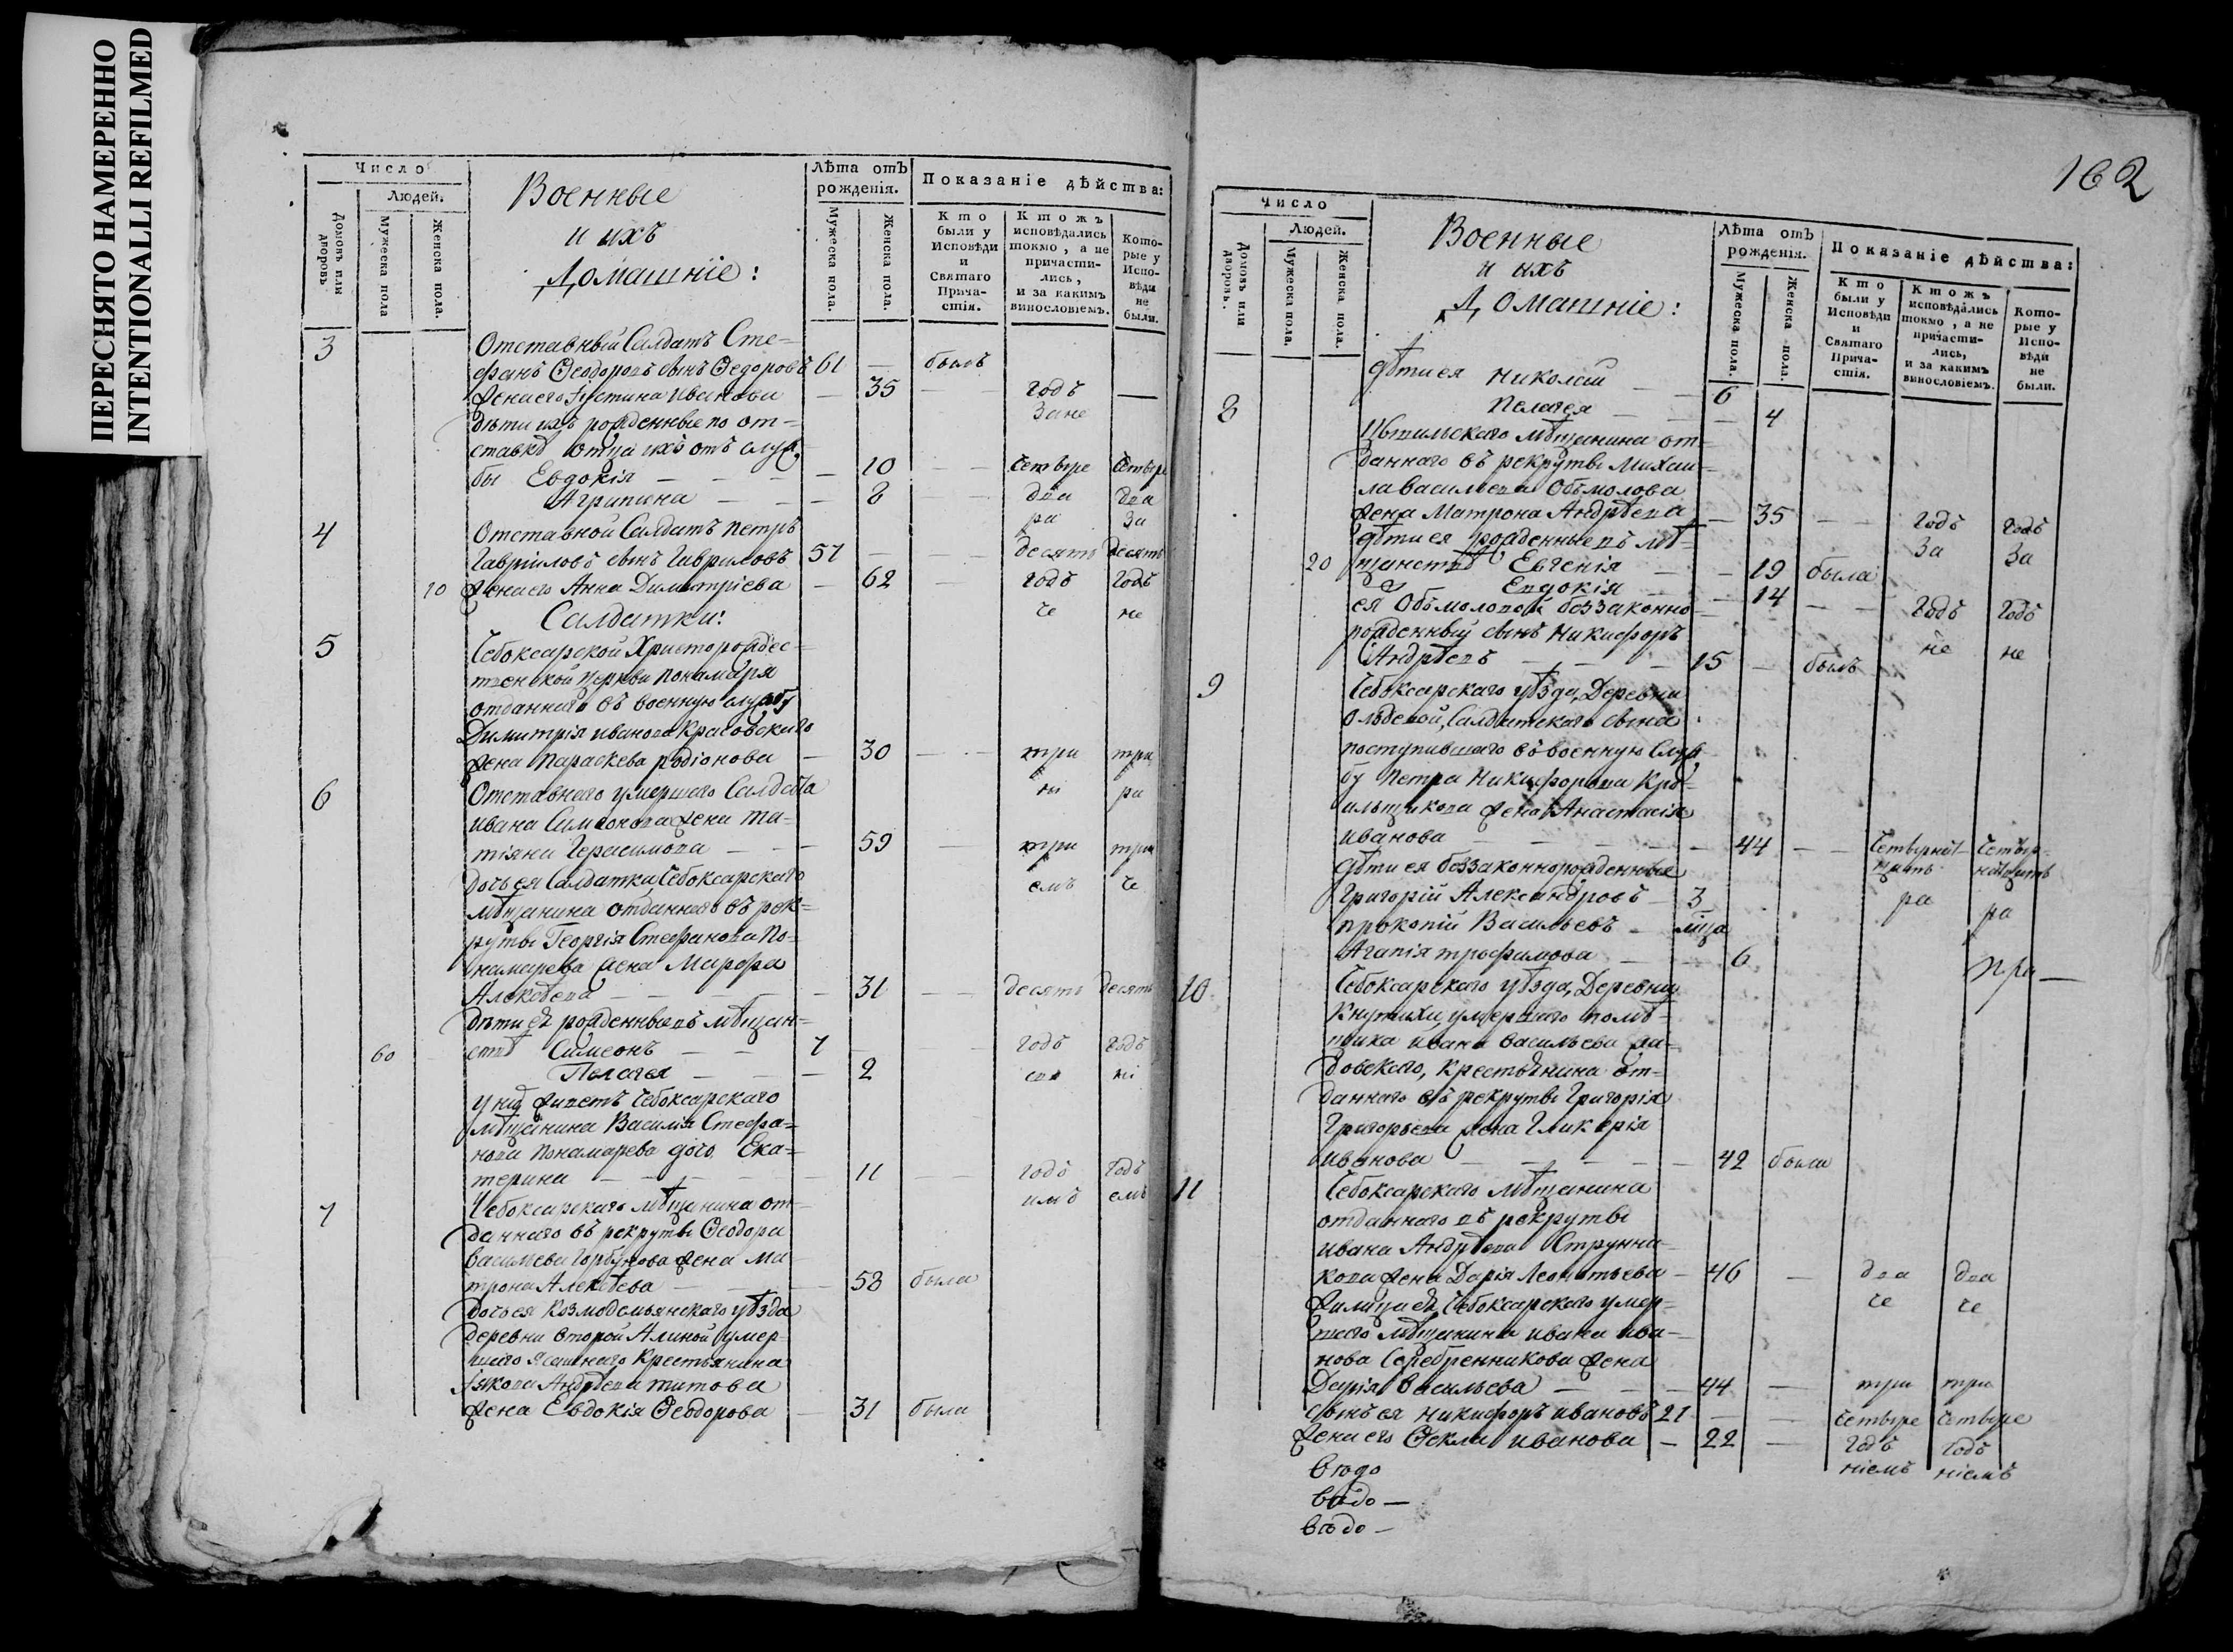 ПЕРЕСНЯТО НАМЕРЕННО
INTENTIONALLI REFILMED
Число
Людей.
Домовъ или дворовъ
Мужеска пола
Женска пола.
Военные
и ихъ
Домашніе:
Лѣта отъ рожденія.
Мужеска пола.
Женска пола.
Показаніе дѣйства:
Кто были у Исповѣди и Святаго Прича-стія.
Ктожъ исповѣдались токмо, а не причасти-лись, и за какимъ винословіемъ.
Кото-рые у Испо-вѣди не были.
3 Отставный Салдатъ Сте=
фанъ Ѳеодоровъ сынъ Ѳедоровъ 61 — былъ
жена его Іустина Иванова — 35 — годъ —
дѣти ихъ рожденные по от= Зане
ставкѣ отца ихъ отъ служ=
бы Евдокія — 10 — четыре четыре
Агрипина — 8 — два два
4 Отставной Салдатъ Петръ ра За
Гавріиловъ сынъ Гавриловъ 57 — десять десять
10 жена его Анна Димитріева — 62 — годъ годъ
Салдатки: че не
5 Чебоксарской Христорождес=
твенской церкви пономаря
отданнаго въ военную службу
Димитрія Иванова Красовскаго
жена Параскева Родіонова — 30 — три три
6 Отставнаго умершаго Салдата ны ра
Ивана Симеонова жена Та=
тіяна Герасимова — 59 — три три
дочь ея Салдатка, Чебоксарскаго емъ че
мѣщанина отданнаго въ рек=
руты Георгія Стефанова По=
номарева жена Марфа
Алексѣева — 31 — десять десять
дѣти ея рожденные въ мѣщан=
60 ствѣ Симеонъ — 7 — годъ годъ
Пелагея — 2
у нихъ живетъ Чебоксарскаго
мѣщанина Василія Стефа=
нова Пономарева дочь Ека=
терина — 11 — годъ годъ
7 Чебоксарскаго мѣщанина от= имъ емъ
даннаго въ рекруты Ѳеодора
Васильева Горбунова жена Ма
трона Алексѣева — 58 была
дочь ея Козмодемьянскаго уѣзда
деревни второй Алиной умер=
шаго ясашнаго крестьянина
Іякова Андрѣева Титова
жена Евдокія Ѳеодорова — 31 была
162
Число
Людей.
Домовъ или дворовъ.
Мужеска пола.
Женска пола.
Военные
и ихъ
Домашніе:
Лѣта отъ рожденія.
Мужеска пола.
Женска пола.
Показаніе дѣйства:
Кто были у Исповѣди и Святаго Прича-стія.
Ктожъ исповѣдались токмо, а не причасти-лись, и за какимъ винословіемъ.
Кото-рые у Испо-вѣди не были.
дѣти ея Николай — 6
Пелагея — 4
8 Цывильскаго мѣщанина от=
даннаго въ рекруты Михаи=
ла Васильева Обмолова
жена Матрона Андрѣева — 35 — годъ годъ
дѣти ея рожденные въ мѣ= За За
20 щанствѣ Евгенія — 19 была
Евдокія — 14 — годъ годъ
ея Обмоловой беззаконно= не не
рожденный сынъ Никифоръ
Андрѣевъ — 15 — былъ
9 Чебоксарскаго уѣзда, Деревни
Ольдеевой, Салдатскаго сына
поступившаго въ военную Служ=
бу Петра Никифорова Кра=
ильщикова жена Анастасія
Иванова — 44 — четырнад= четыр=
дѣти ея беззаконнорожденные цать надцать
Григорій Александровъ — 3 ра ра
Прокопій Васильевъ — мца
Агапія Трофимова — 6 при —
10 Чебоксарскаго уѣзда, Деревни
Кнутихи, умершаго помѣ=
щика Ивана Васильева
довскаго, крестьянина от=
даннаго въ рекруты Григорія
Григорьева жена Гликерія
Иванова — 42 была
11 Чебоксарскаго мѣщанина
отданнаго въ рекруты
Ивана Андрѣева Струнни=
кова жена Дарія Леонтьева — 46 — два два
жилица ея, Чебоксарскаго умер= че че
шаго мѣщанина Ивана Ива=
нова Серебренникова жена
Дарія Васильева — 44 — три три
сынъ ея Никифоръ Ивановъ 21 — четыре четыре
жена его Ѳекла Иванова — 22 — годъ годъ
ніемъ ніемъ